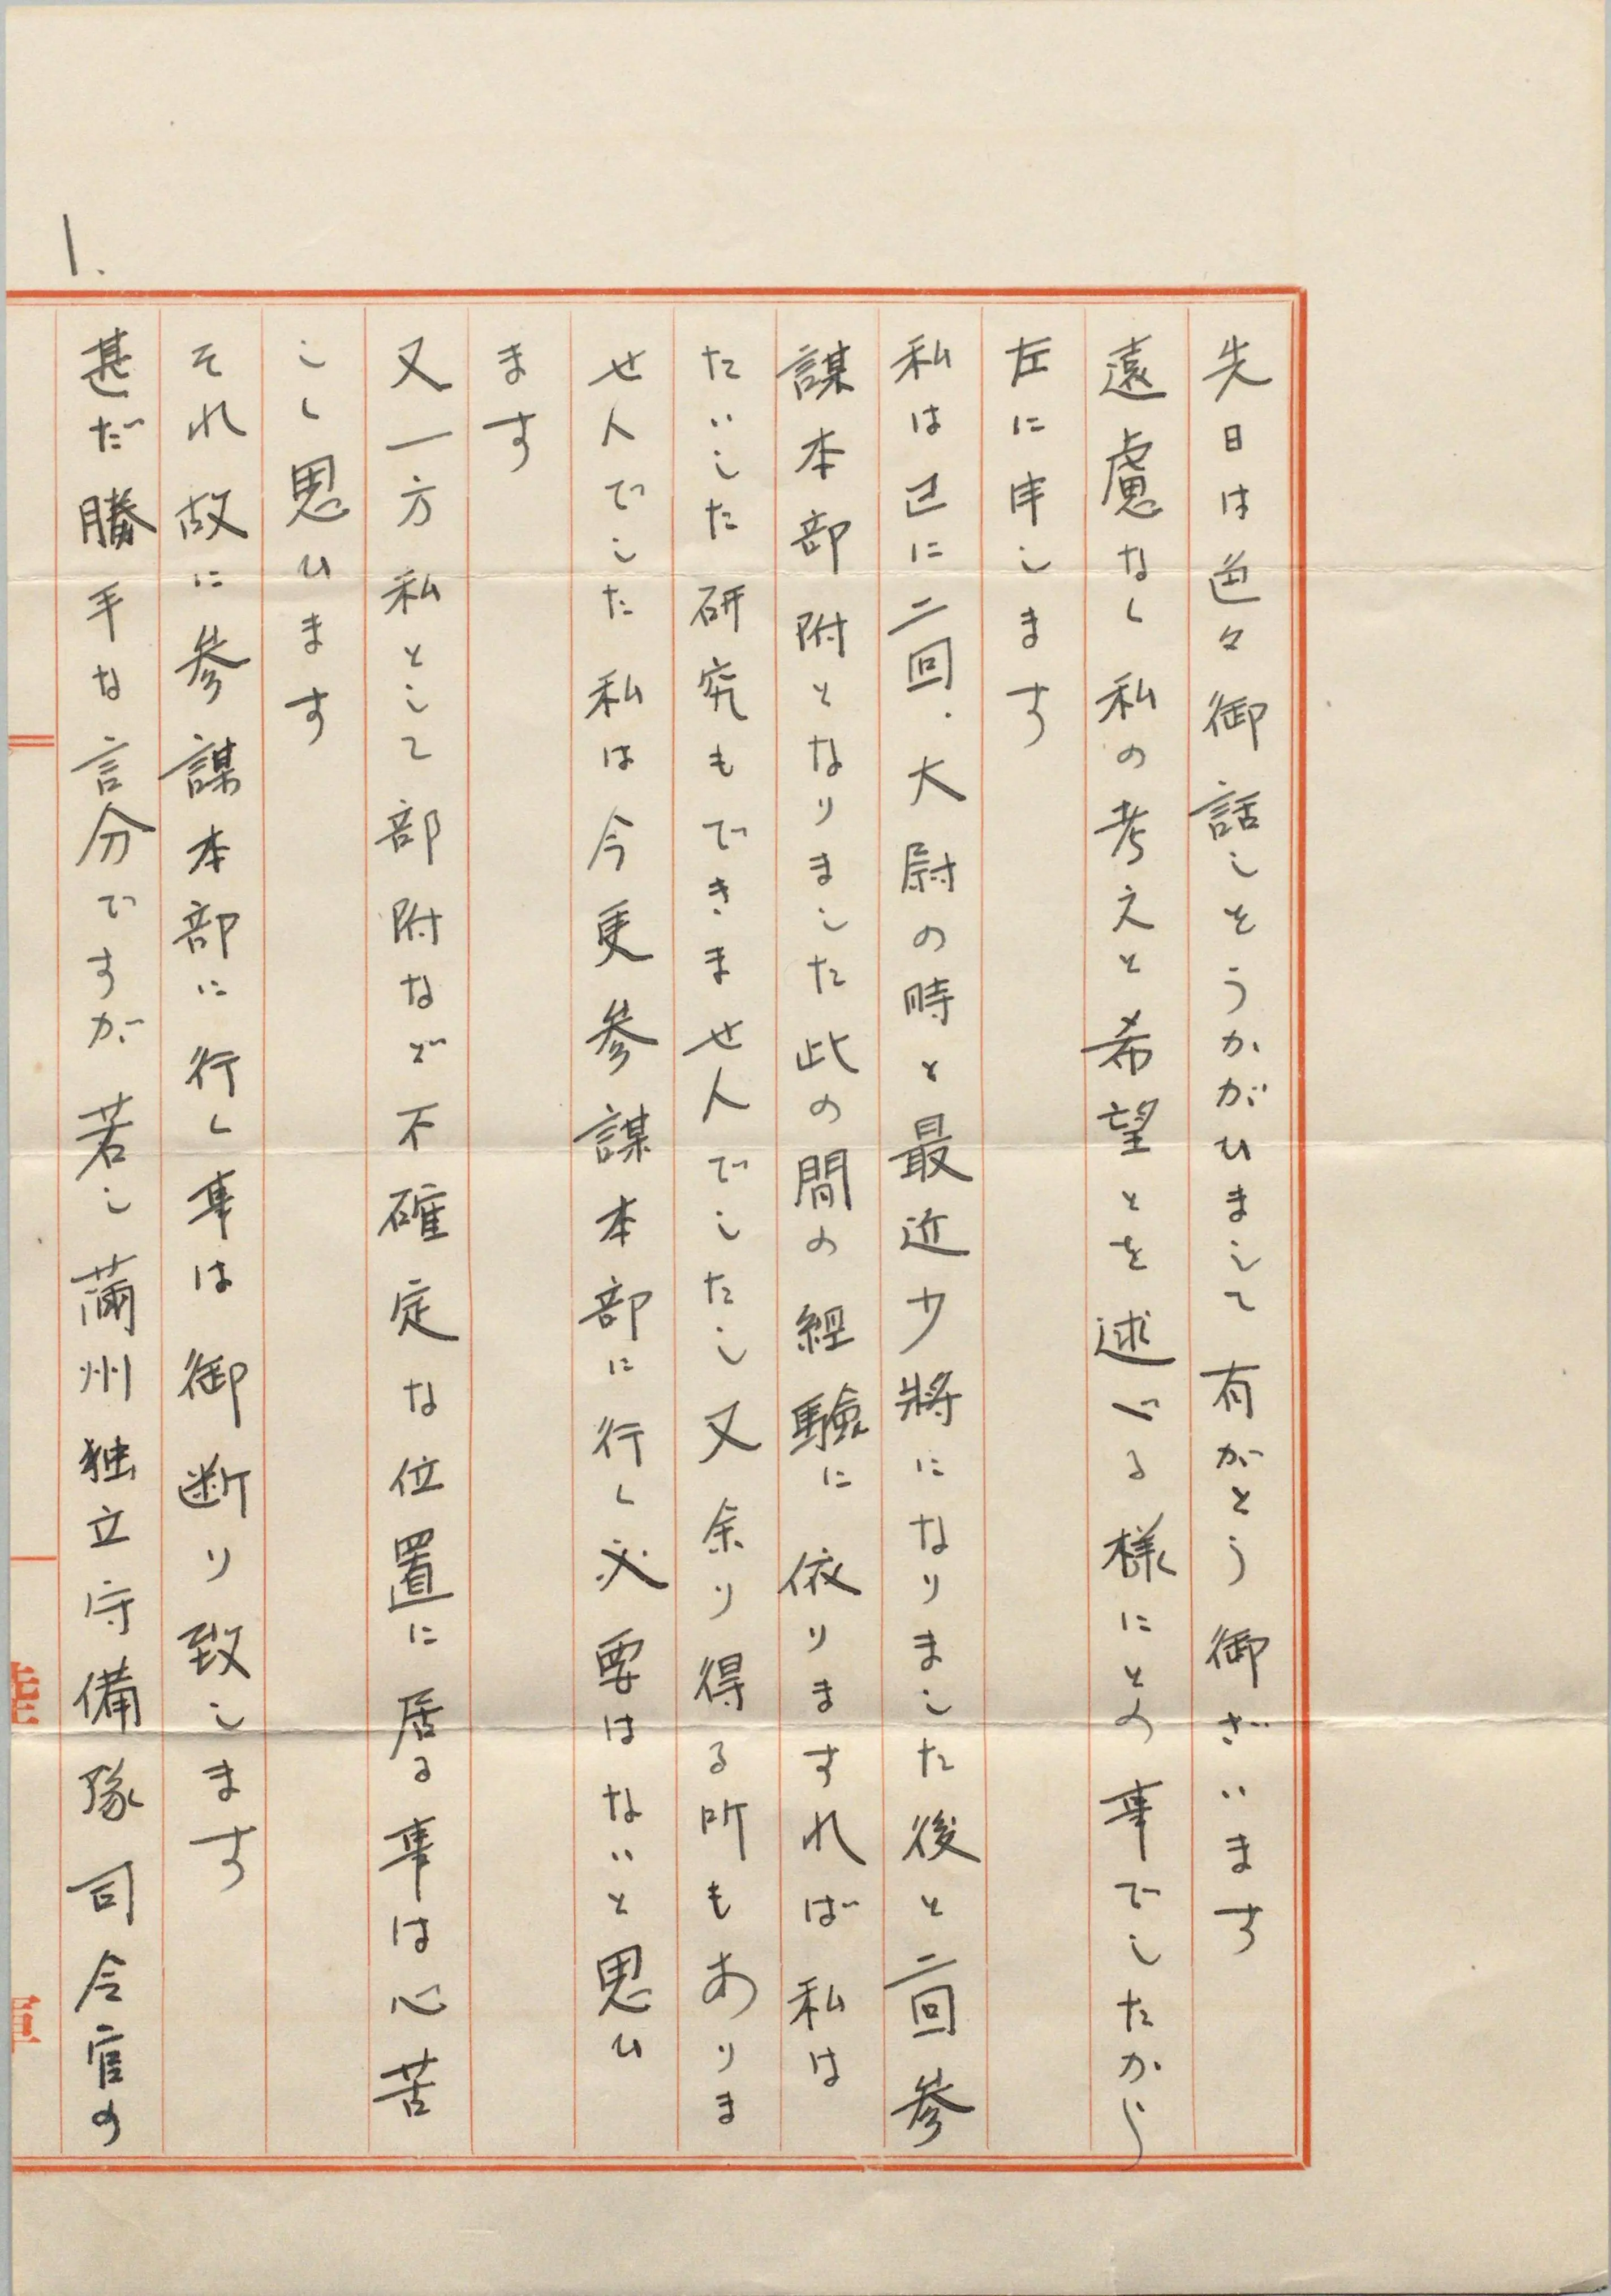 1.
先日は色々御話しをうかがひまして有がとう御ざいます
遠慮なく私の考えと希望とを述べる様にとの事でしたから
左に申します
私は已に二回.大尉の時と最近少將になりました後と二回参
謀本部附となりました此の間の経験に依りますれば私は
たいした研究もできませんでしたし又余り得る所もありま
せんでした私は今更参謀本部に行く必要はないと思ひ
ます
又一方私として部附など不確定な位置に居る事は心苦
しく思ひます
それ故に参謀本部に行く事は御断り致します
甚だ勝手な言分ですが若し満州独立守備隊司令官の